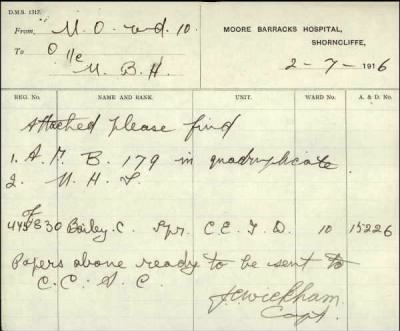 D.M.S. 1317.
MOORE BARRACKS HOSPITAL,
SHORNCLIFFE,
From M. O. wd. 10.
To O i/c
M. B. H.
2-7-1916
REG. No. NAME AND RANK. UNIT. WARD No. A. & D. No.
Attached please find
1. A. F. B. 179 in quadruplicate.
2. M. H. S.
830 Bailey. C. Spr. C. E. T. D. 10 15226
Papers above ready to be sent to
C. C. A. C.
Wickham.
Capt.